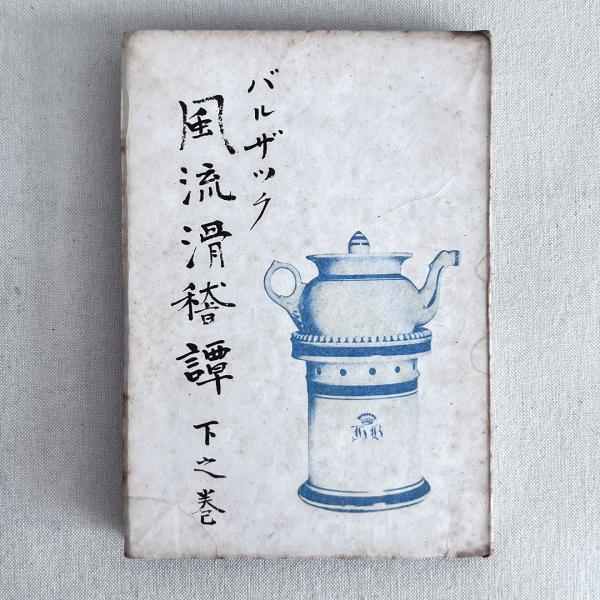 バルザツク
風流滑稽譚 下之巻
HB